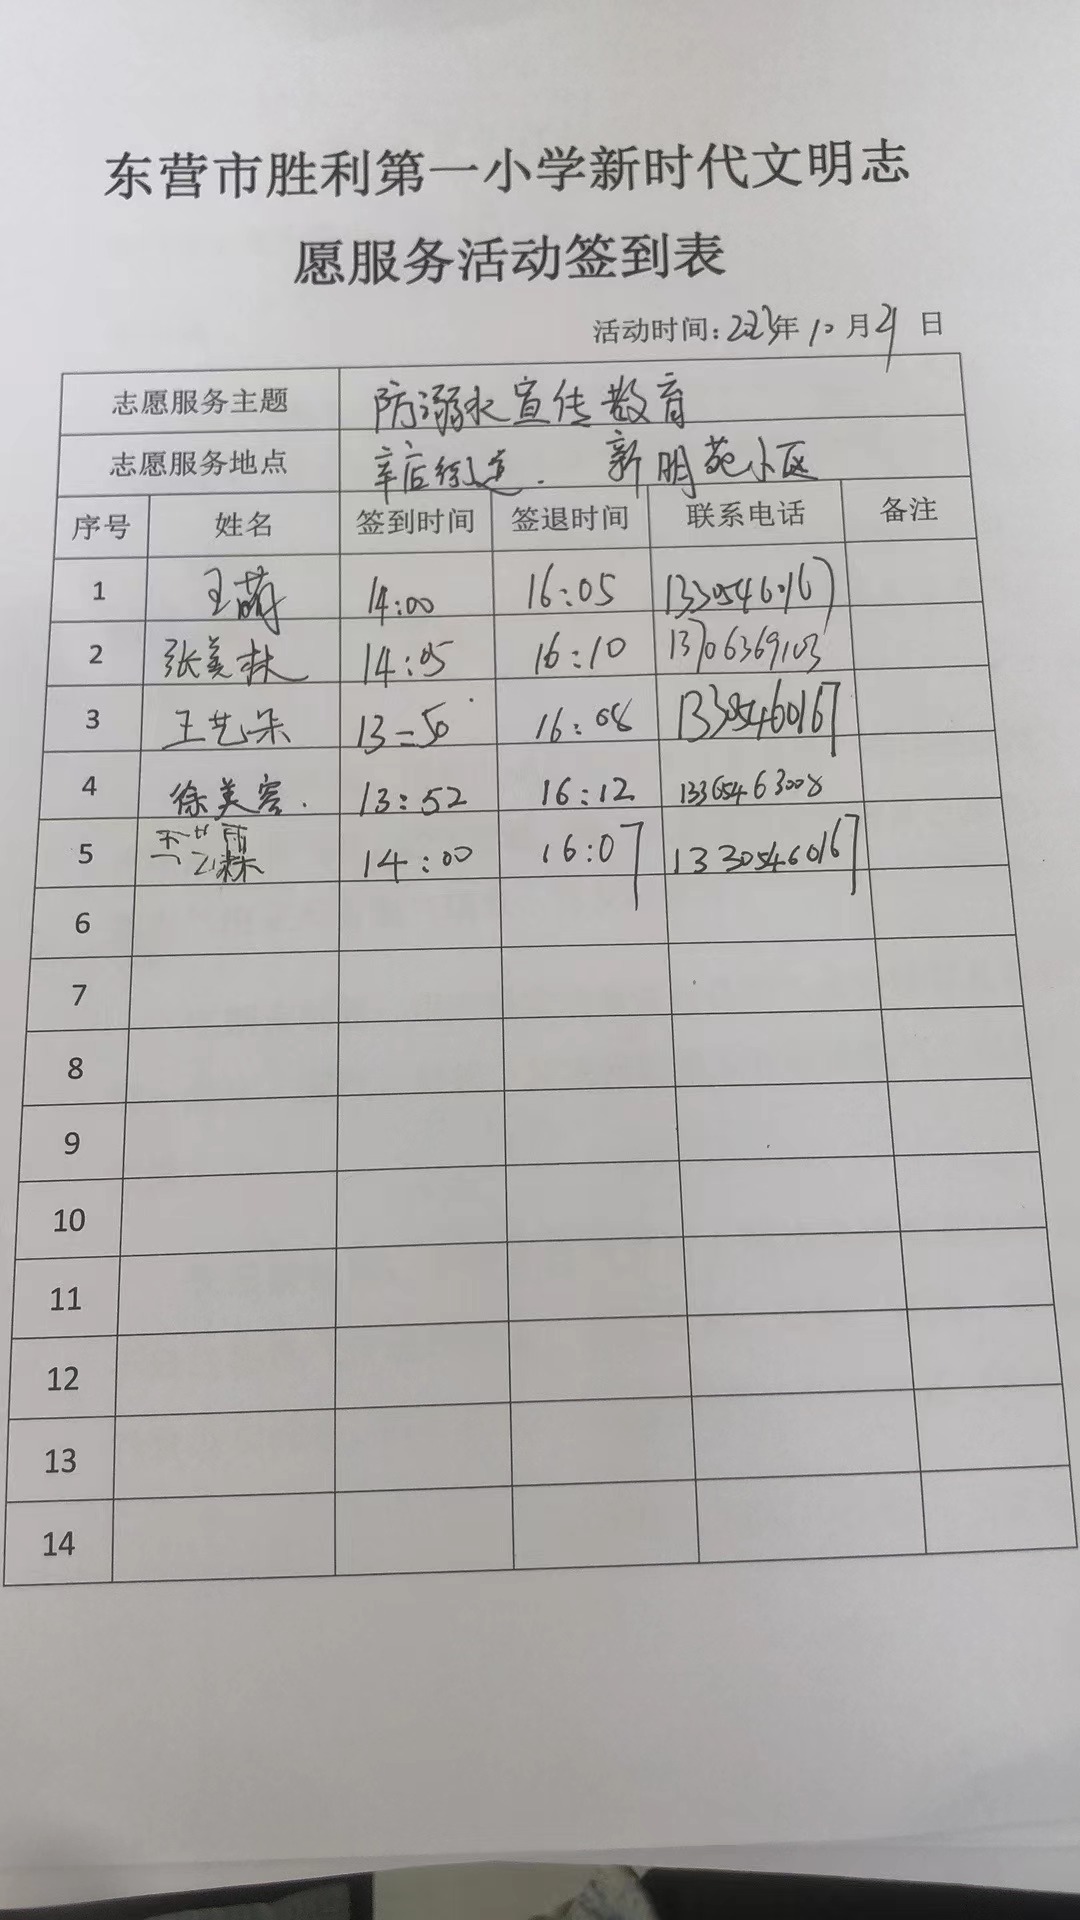 东营市胜利第一小学新时代文明志
愿服务活动签到表
活动时间:2023年10月21日
志愿服务主题 防溺水宣传教育
志愿服务地点 辛店街道. 新明苑小区
序号 姓名 签到时间 签退时间 联系电话 备注
1 王萌 14:00 16:05 13305460167
2 张美林 14:05 16:10 13706369103
3 王艺朵 13=50 16:08 13305460167
4 徐美容. 13:52 16:12 13365463008
5 14:00 16:07 13305460167
6
7
8
9
10
11
12
13
14